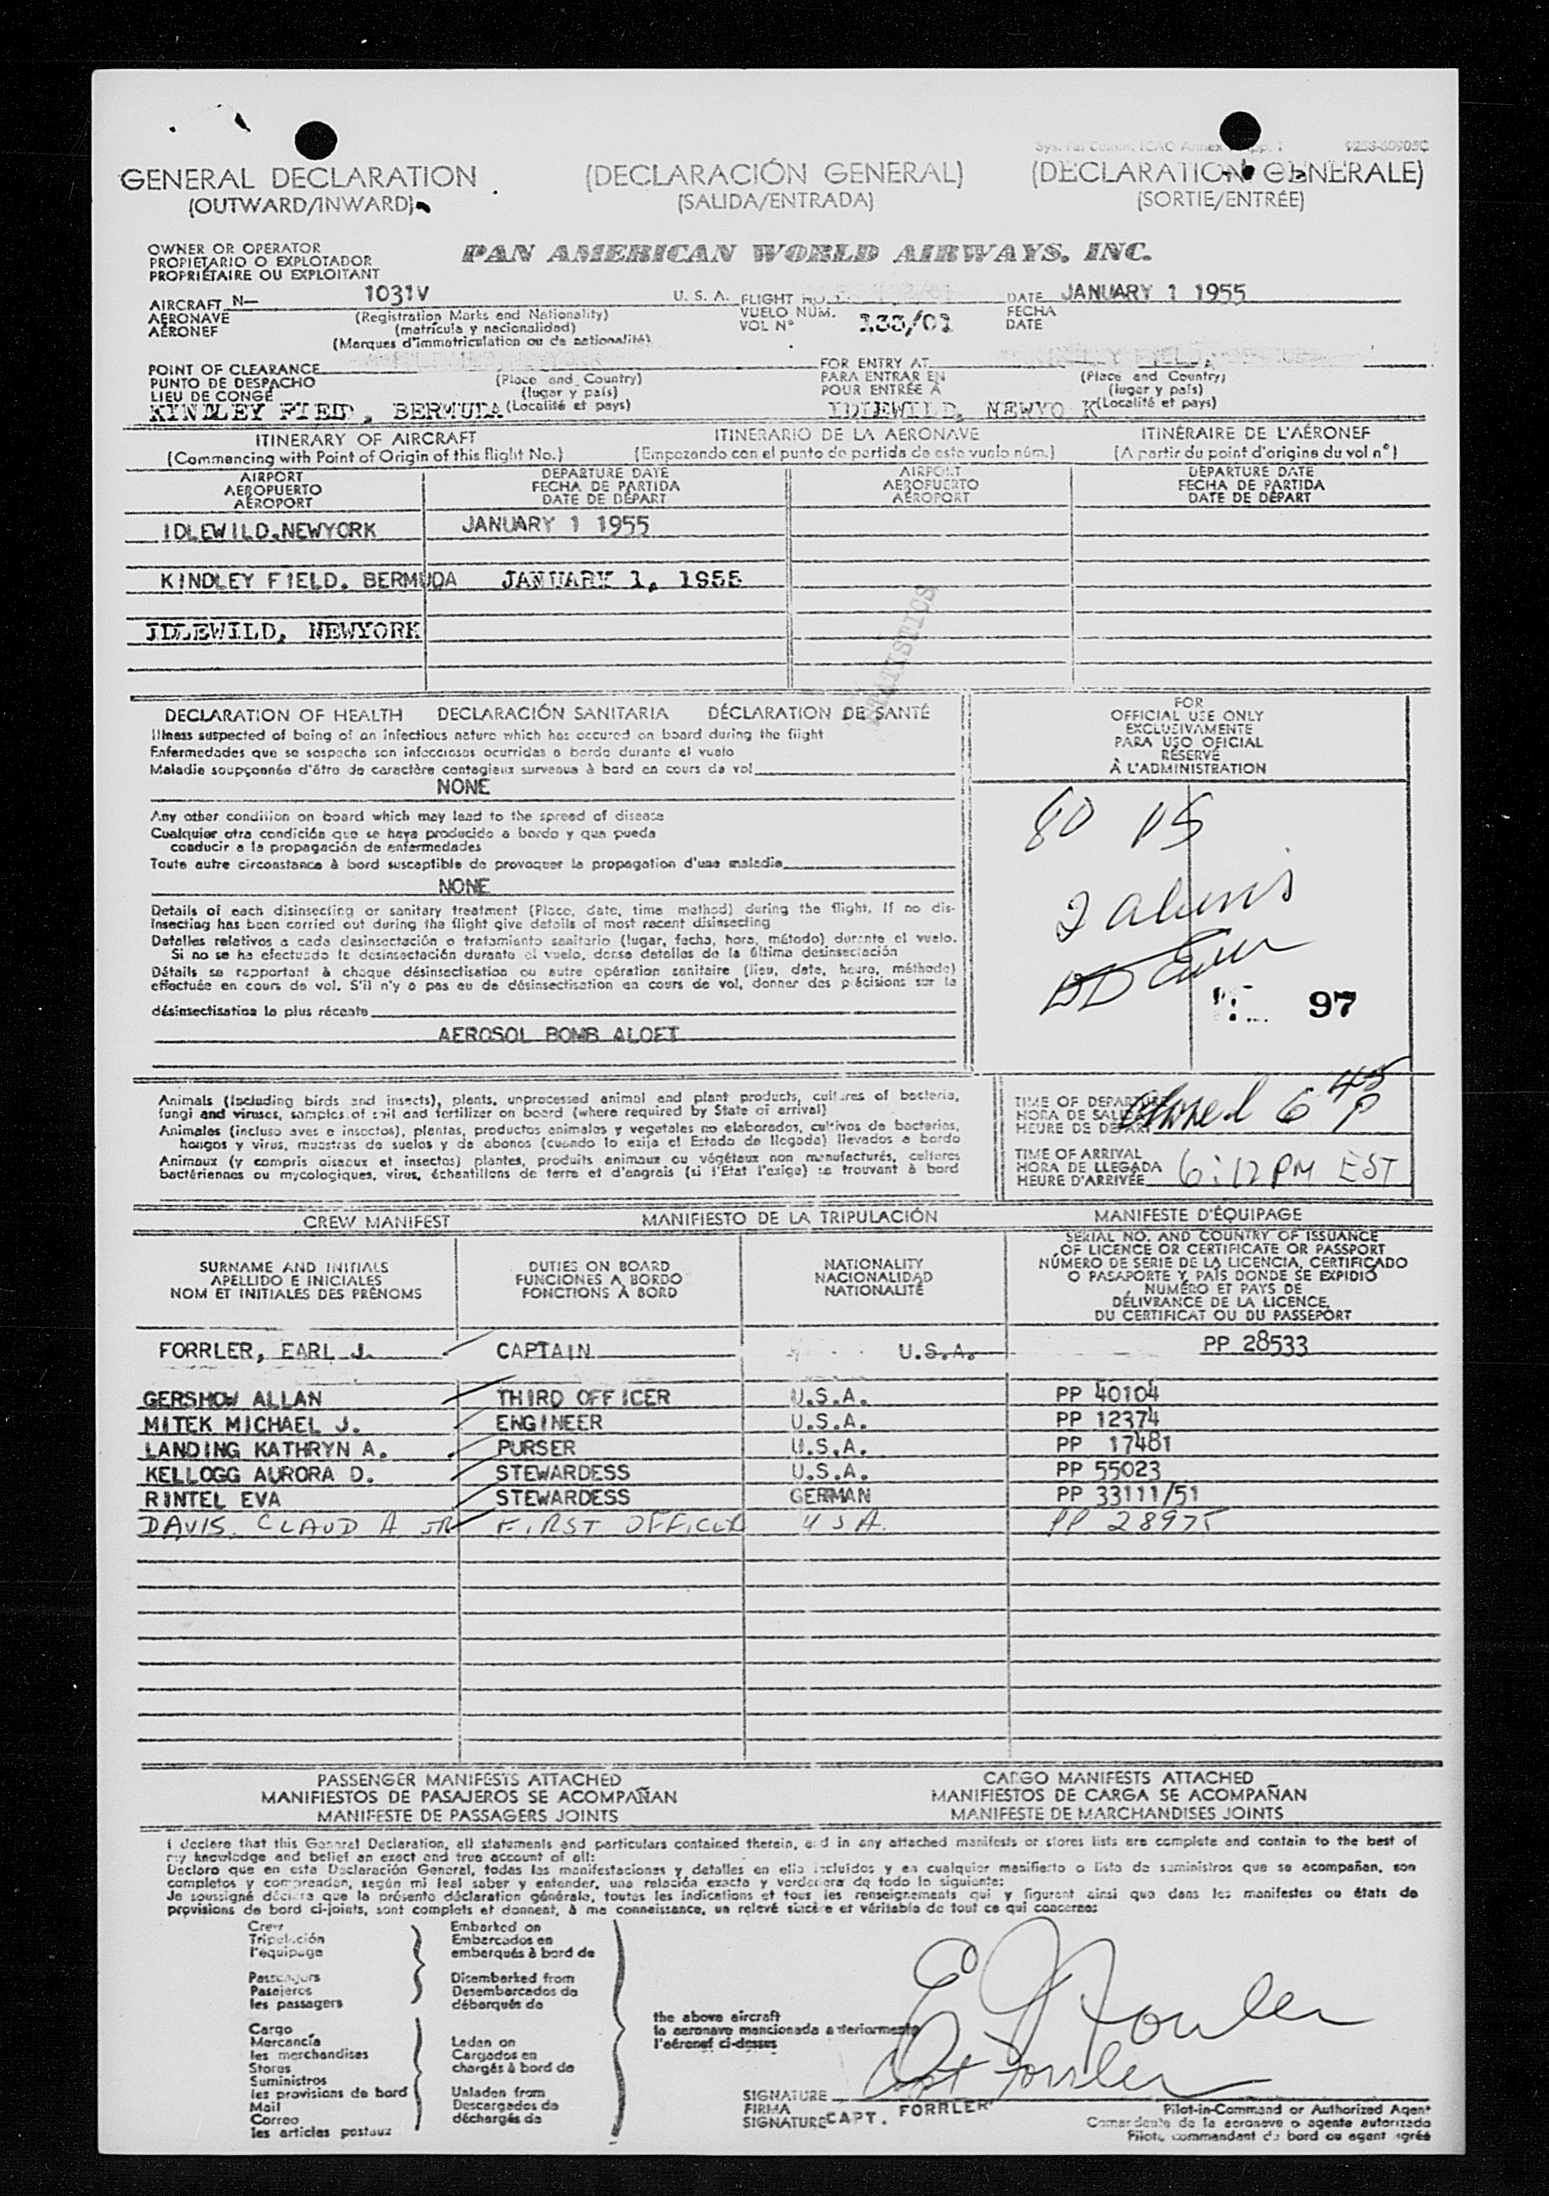 GENERAL DECLARATION (DECLARACIÓN GENERAL) (DECLARATION GENERALE)
(OUTWARD/INWARD) (SALIDA/ENTRADA) (SORTIE/ENTRÉE)
OWNER OR OPERATOR
PROPIETARIO O EXPLOTADOR
PROPRIÉTAIRE OU EXPLOITANT
PAN AMERICAN WORLD AIRWAYS, INC.
AIRCRAFT N— 1031V U. S. A. FLIGHT NO. DATE JANUARY 1 1955
AERONAVE (Registration Marks and Nationality) VUELO NÚM. 133/01 FECHA
AÉRONEF (matrícula y nacionalidad) VOL N° DATE
(Marques d'immatriculation ou de nationalité)
POINT OF CLEARANCE FOR ENTRY AT
PUNTO DE DESPACHO (Place and Country) PARA ENTRAR EN (Place and Country)
LIEU DE CONGÉ (lugar y país) POUR ENTRÉE À (lugar y país)
KINDLEY FIED, BERMUDA (Localité et pays) IDLEWILD, NEWYO K (Localité et pays)
ITINERARY OF AIRCRAFT ITINERARIO DE LA AERONAVE ITINÉRAIRE DE L'AÉRONEF
(Commencing with Point of Origin of this flight No.) (Empezando con el punto de partida de este vuelo núm.) (A partir du point d'origine du vol n°)
AIRPORT DEPARTURE DATE AIRPORT DEPARTURE DATE
AEROPUERTO FECHA DE PARTIDA AEROPUERTO FECHA DE PARTIDA
AÉROPORT DATE DE DÉPART AÉROPORT DATE DE DÉPART
IDLEWILD.NEWYORK JANUARY 1 1955
KINDLEY FIELD. BERMUDA JANUARY 1, 1955
IDLEWILD, NEWYORK
STATISTICS
DECLARATION OF HEALTH DECLARACIÓN SANITARIA DÉCLARATION DE SANTÉ
Illness suspected of being of an infectious nature which has occured on board during the flight
Enfermedades que se sospecha son infecciosas ocurridas a bordo durante el vuelo
Maladie soupçonnée d'être de caractère contagieux survenue à bord en cours de vol
NONE
Any other condition on board which may lead to the spread of disease
Cualquier otra condición que se haya producido a bordo y que pueda
conducir a la propagación de enfermedades
Toute autre circonstance à bord susceptible de provoquer la propagation d'une maladie
NONE
Details of each disinsecting or sanitary treatment (Place, date, time method) during the flight. If no dis-
insecting has been carried out during the flight give details of most recent disinsecting
Detalles relativos a cada desinsectación o tratamiento sanitario (lugar, fecha, hora, método) durante el vuelo.
Si no se ha efectuado la desinsectación durante el vuelo, dense detalles de la última desinsectación
Détails se rapportant à chaque désinsectisation ou autre opération sanitaire (lieu, date, heure, méthode)
effectuée en cours de vol. S'il n'y a pas eu de désinsectisation en cours de vol, donner des précisions sur la
désinsectisation la plus récente
AEROSOL BOMB ALOFT
FOR
OFFICIAL USE ONLY
EXCLUSIVAMENTE
PARA USO OFICIAL
RÉSERVÉ
À L'ADMINISTRATION
80 US
2 aliens
97
Animals (including birds and insects), plants, unprocessed animal and plant products, cultures of bacteria,
fungi and viruses, samples of soil and fertilizer on board (where required by State of arrival)
Animales (incluso aves e insectos), plantas, productos animales y vegetales no elaborados, cultivos de bacterias,
hongos y virus, muestras de suelos y de abonos (cuando lo exija el Estado de llegada) llevados a bordo
Animaux (y compris oiseaux et insectes) plantes, produits animaux ou végétaux non manufacturés, cultures
bactériennes ou mycologiques, virus, échantillons de terre et d'engrais (si l'Etat l'exige) se trouvant à bord
TIME OF DEPARTURE
HORA DE SALIDA
HEURE DE DÉPART
6 45 P
TIME OF ARRIVAL
HORA DE LLEGADA
HEURE D'ARRIVÉE 6:12 PM EST
CREW MANIFEST MANIFIESTO DE LA TRIPULACIÓN MANIFESTE D'ÉQUIPAGE
SURNAME AND INITIALS
APELLIDO E INICIALES
NOM ET INITIALES DES PRÉNOMS
DUTIES ON BOARD
FUNCIONES A BORDO
FONCTIONS À BORD
NATIONALITY
NACIONALIDAD
NATIONALITÉ
SERIAL NO. AND COUNTRY OF ISSUANCE
OF LICENCE OR CERTIFICATE OR PASSPORT
NÚMERO DE SERIE DE LA LICENCIA, CERTIFICADO
O PASAPORTE Y PAÍS DONDE SE EXPIDIÓ
NUMÉRO ET PAYS DE
DÉLIVRANCE DE LA LICENCE,
DU CERTIFICAT OU DU PASSEPORT
FORRLER, EARL J. CAPTAIN U.S.A. PP 28533
GERSHOW ALLAN THIRD OFFICER U.S.A. PP 40104
MITEK MICHAEL J. ENGINEER U.S.A. PP 12374
LANDING KATHRYN A. PURSER U.S.A. PP 17481
KELLOGG AURORA D. STEWARDESS U.S.A. PP 55023
RINTEL EVA STEWARDESS GERMAN PP 33111/51
DAVIS. CLAUD A JR FIRST OFFICER USA. PP 28975
PASSENGER MANIFESTS ATTACHED CARGO MANIFESTS ATTACHED
MANIFIESTOS DE PASAJEROS SE ACOMPAÑAN MANIFIESTOS DE CARGA SE ACOMPAÑAN
MANIFESTE DE PASSAGERS JOINTS MANIFESTE DE MARCHANDISES JOINTS
I declare that this General Declaration, all statements and particulars contained therein, and in any attached manifests or stores lists are complete and contain to the best of
my knowledge and belief an exact and true account of all:
Declaro que en esta Declaración General, todas las manifestaciones y detalles en ella incluidos y en cualquier manifiesto o lista de suministros que se acompañan, son
completos y comprenden, según mi leal saber y entender, una relación exacta y verdadera de todo lo siguiente:
Je soussigné déclare que la présente déclaration générale, toutes les indications et tous les renseignements qui y figurent ainsi que dans les manifestes ou états de
provisions de bord ci-joints, sont complets et donnent, à ma connaissance, un relevé sincère et véritable de tout ce qui concerne:
Crew
Tripulación
l'équipage
Passengers
Pasajeros
les passagers
Cargo
Mercancía
les merchandises
Stores
Suministros
les provisions de bord
Mail
Correo
les articles postaux
Embarked on
Embarcados en
embarqués à bord de
Disembarked from
Desembarcados de
débarqués de
Laden on
Cargados en
chargés à bord de
Unladen from
Descargados de
déchargés de
the above aircraft
la aeronave mencionada anteriormente
l'aéronef ci-dessus
E J Forrler
Capt Forrler
SIGNATURE
FIRMA
SIGNATURE CAPT. FORRLER
Pilot-in-Command or Authorized Agent
Comandante de la aeronave o agente autorizado
Pilote commandant de bord ou agent agréé